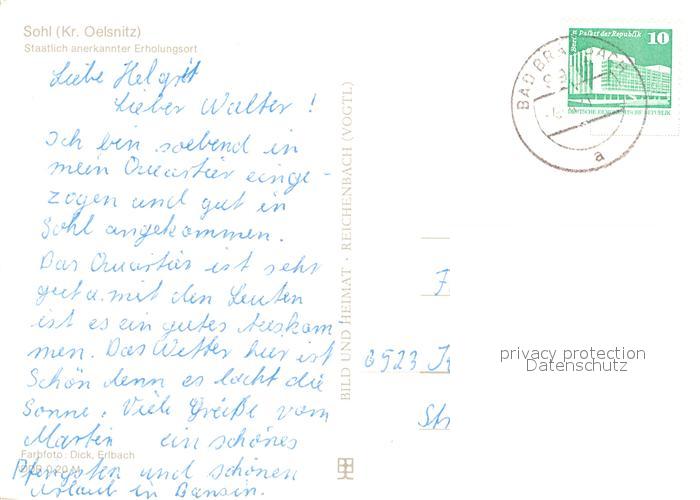 Sohl (Kr. Oelsnitz)
Staatlich anerkannter Erholungsort
Liebe Helgrit
Lieber Walter !
Ich bin soebend in
mein Quartier einge-
zogen und gut in
Sohl angekommen.
Das Quartier ist sehr
gut u. mit den Leuten
ist es ein gutes Auskom
men. Das Wetter hier ist
Schön denn es lacht die
Sonne. Viele Grüße vom
Martin ein schönes
Pfengsten und schönen
Urlaub in Bansin.
Farbfoto: Dick, Erlbach
BILD UND HEIMAT · REICHENBACH (VOGTL)
Palast der Republik
10
DEUTSCHE DEMOKRATISCHE REPUBLIK
BAD BRAMBACH
a
privacy protection
Datenschutz